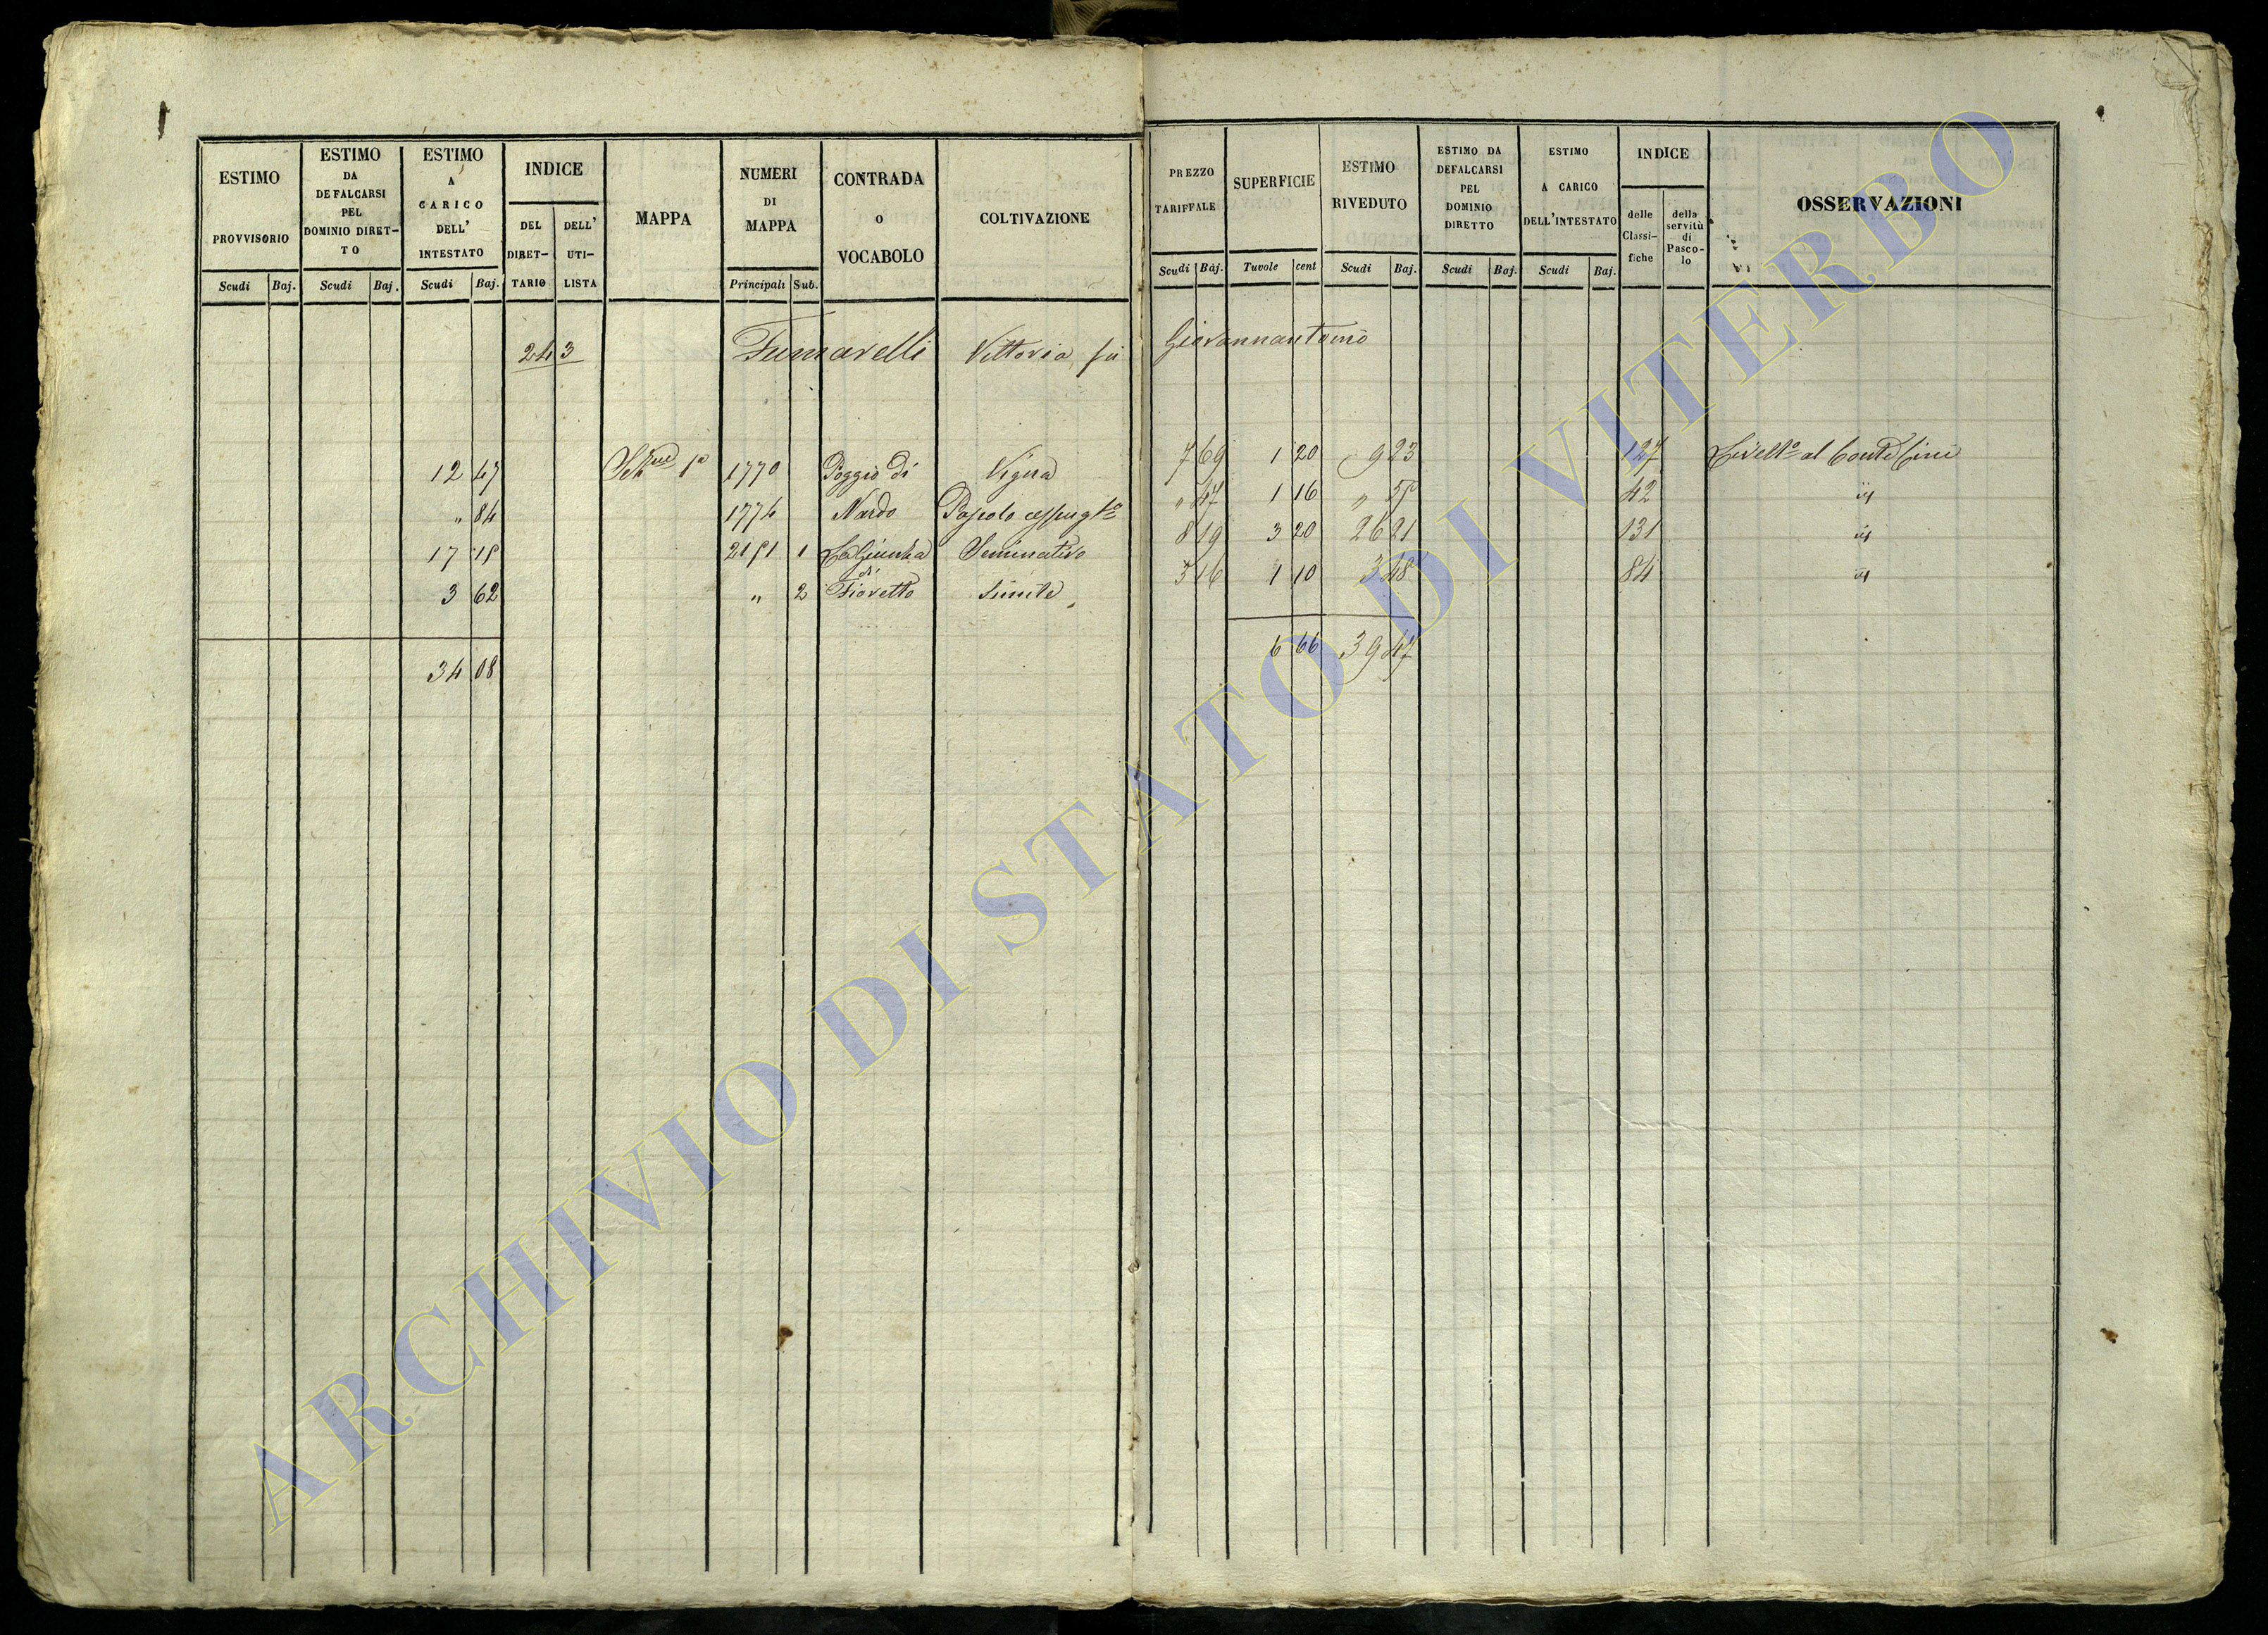 ESTIMO PROVVISORIO
ESTIMO DA DEFALCARSI PEL DOMINIO DIRET-TO
ESTIMO A CARICO DELL' INTESTATO
INDICE
DEL DIRET-TARIO
DELL' UTI-LISTA
MAPPA
NUMERI DI MAPPA
CONTRADA O VOCABOLO
COLTIVAZIONE
PREZZO TARIFFALE
SUPERFICIE
ESTIMO RIVEDUTO
ESTIMO DA DEFALCARSI PEL DOMINIO DIRETTO
ESTIMO A CARICO DELL'INTESTATO
INDICE
delle Classi-fiche
della servitù di Pasco-lo
OSSERVAZIONI
Scudi Baj. Scudi Baj. Scudi Baj. Principali Sub. Scudi Baj. Tavole cent Scudi Baj. Scudi Baj. Scudi Baj.
243 Fumarelli Vittoria fu Giovannantonio
12 47 1770 Poggio di Vigna 7 69 1 20 9 23 127 al Conte Cini
" 84 1774 Nardo Pascolo " 47 1 16 " 55 42 "
17 15 2151 1 Seminativo 8 19 3 20 26 21 131 "
3 62 " 2 di Fioretto Simile 3 16 1 10 3 48 84 "
34 08 6 66 39 47
ARCHIVIO DI STATO DI VITERBO